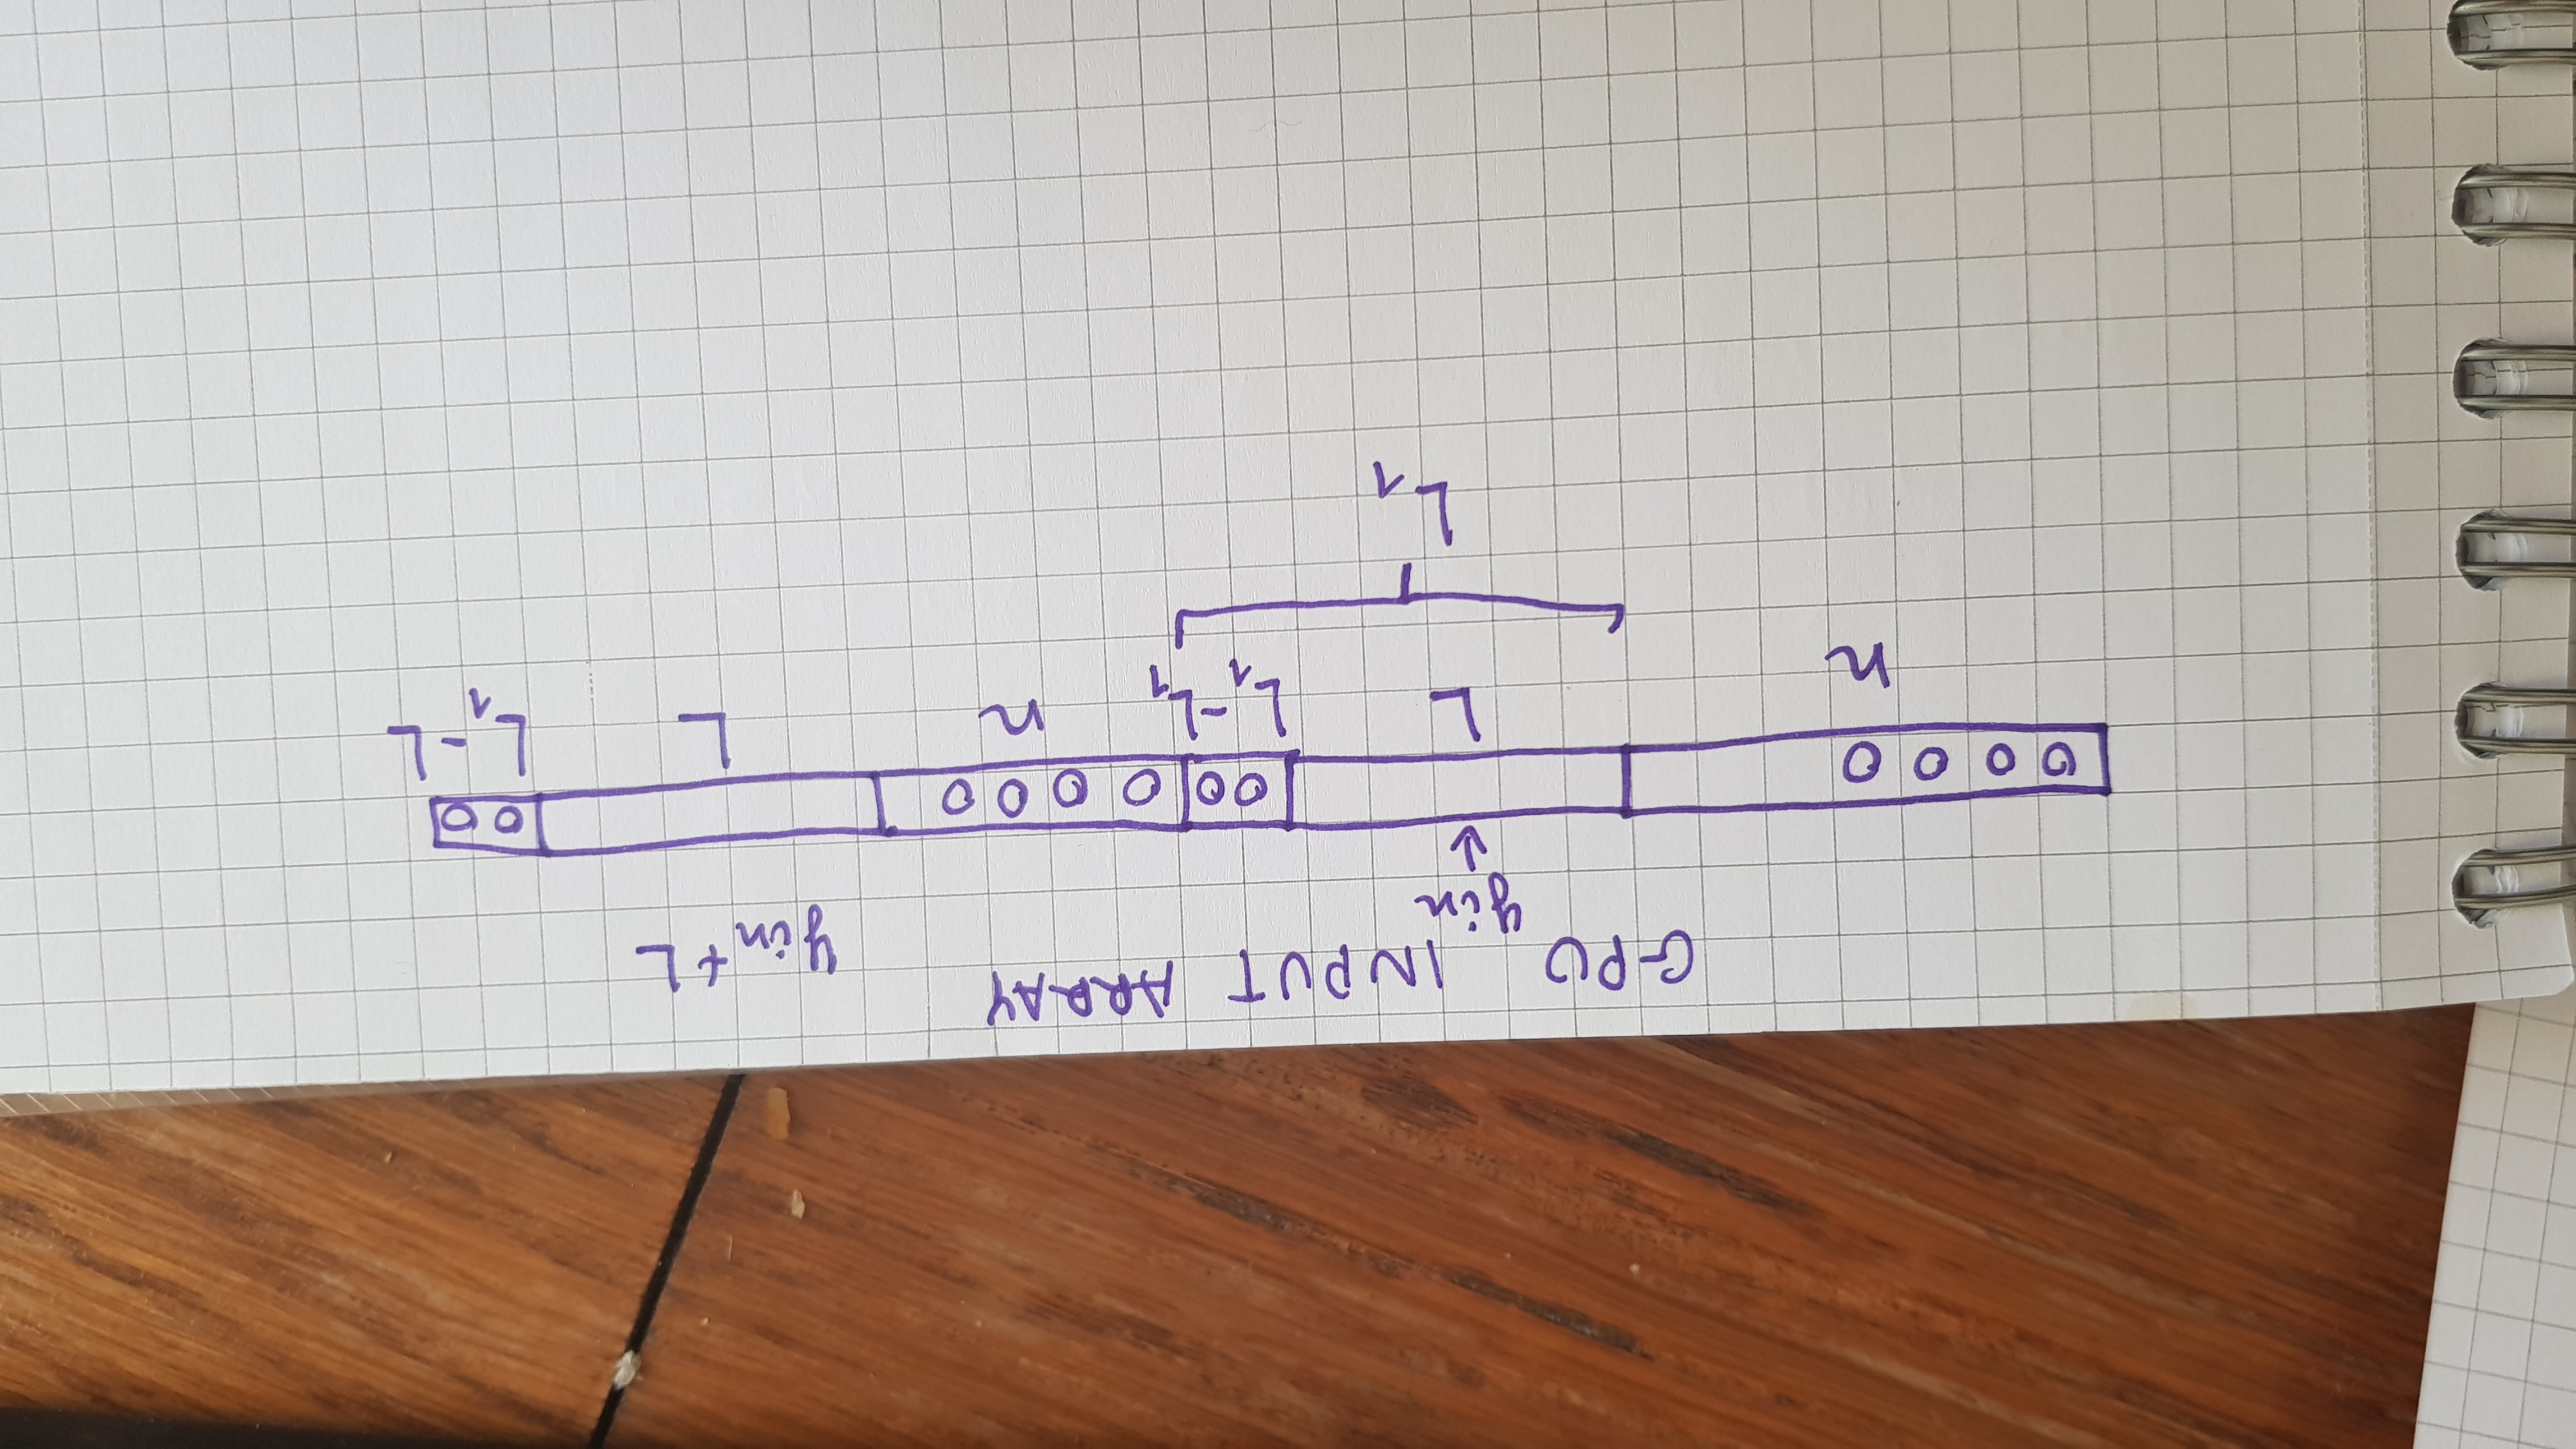 GPU INPUT ARRAY
yin yin + L
↓
0 0 0 0 0 0 0 0 0 0 0 0
n L L₁-L₁ n L L₁-L
L₁